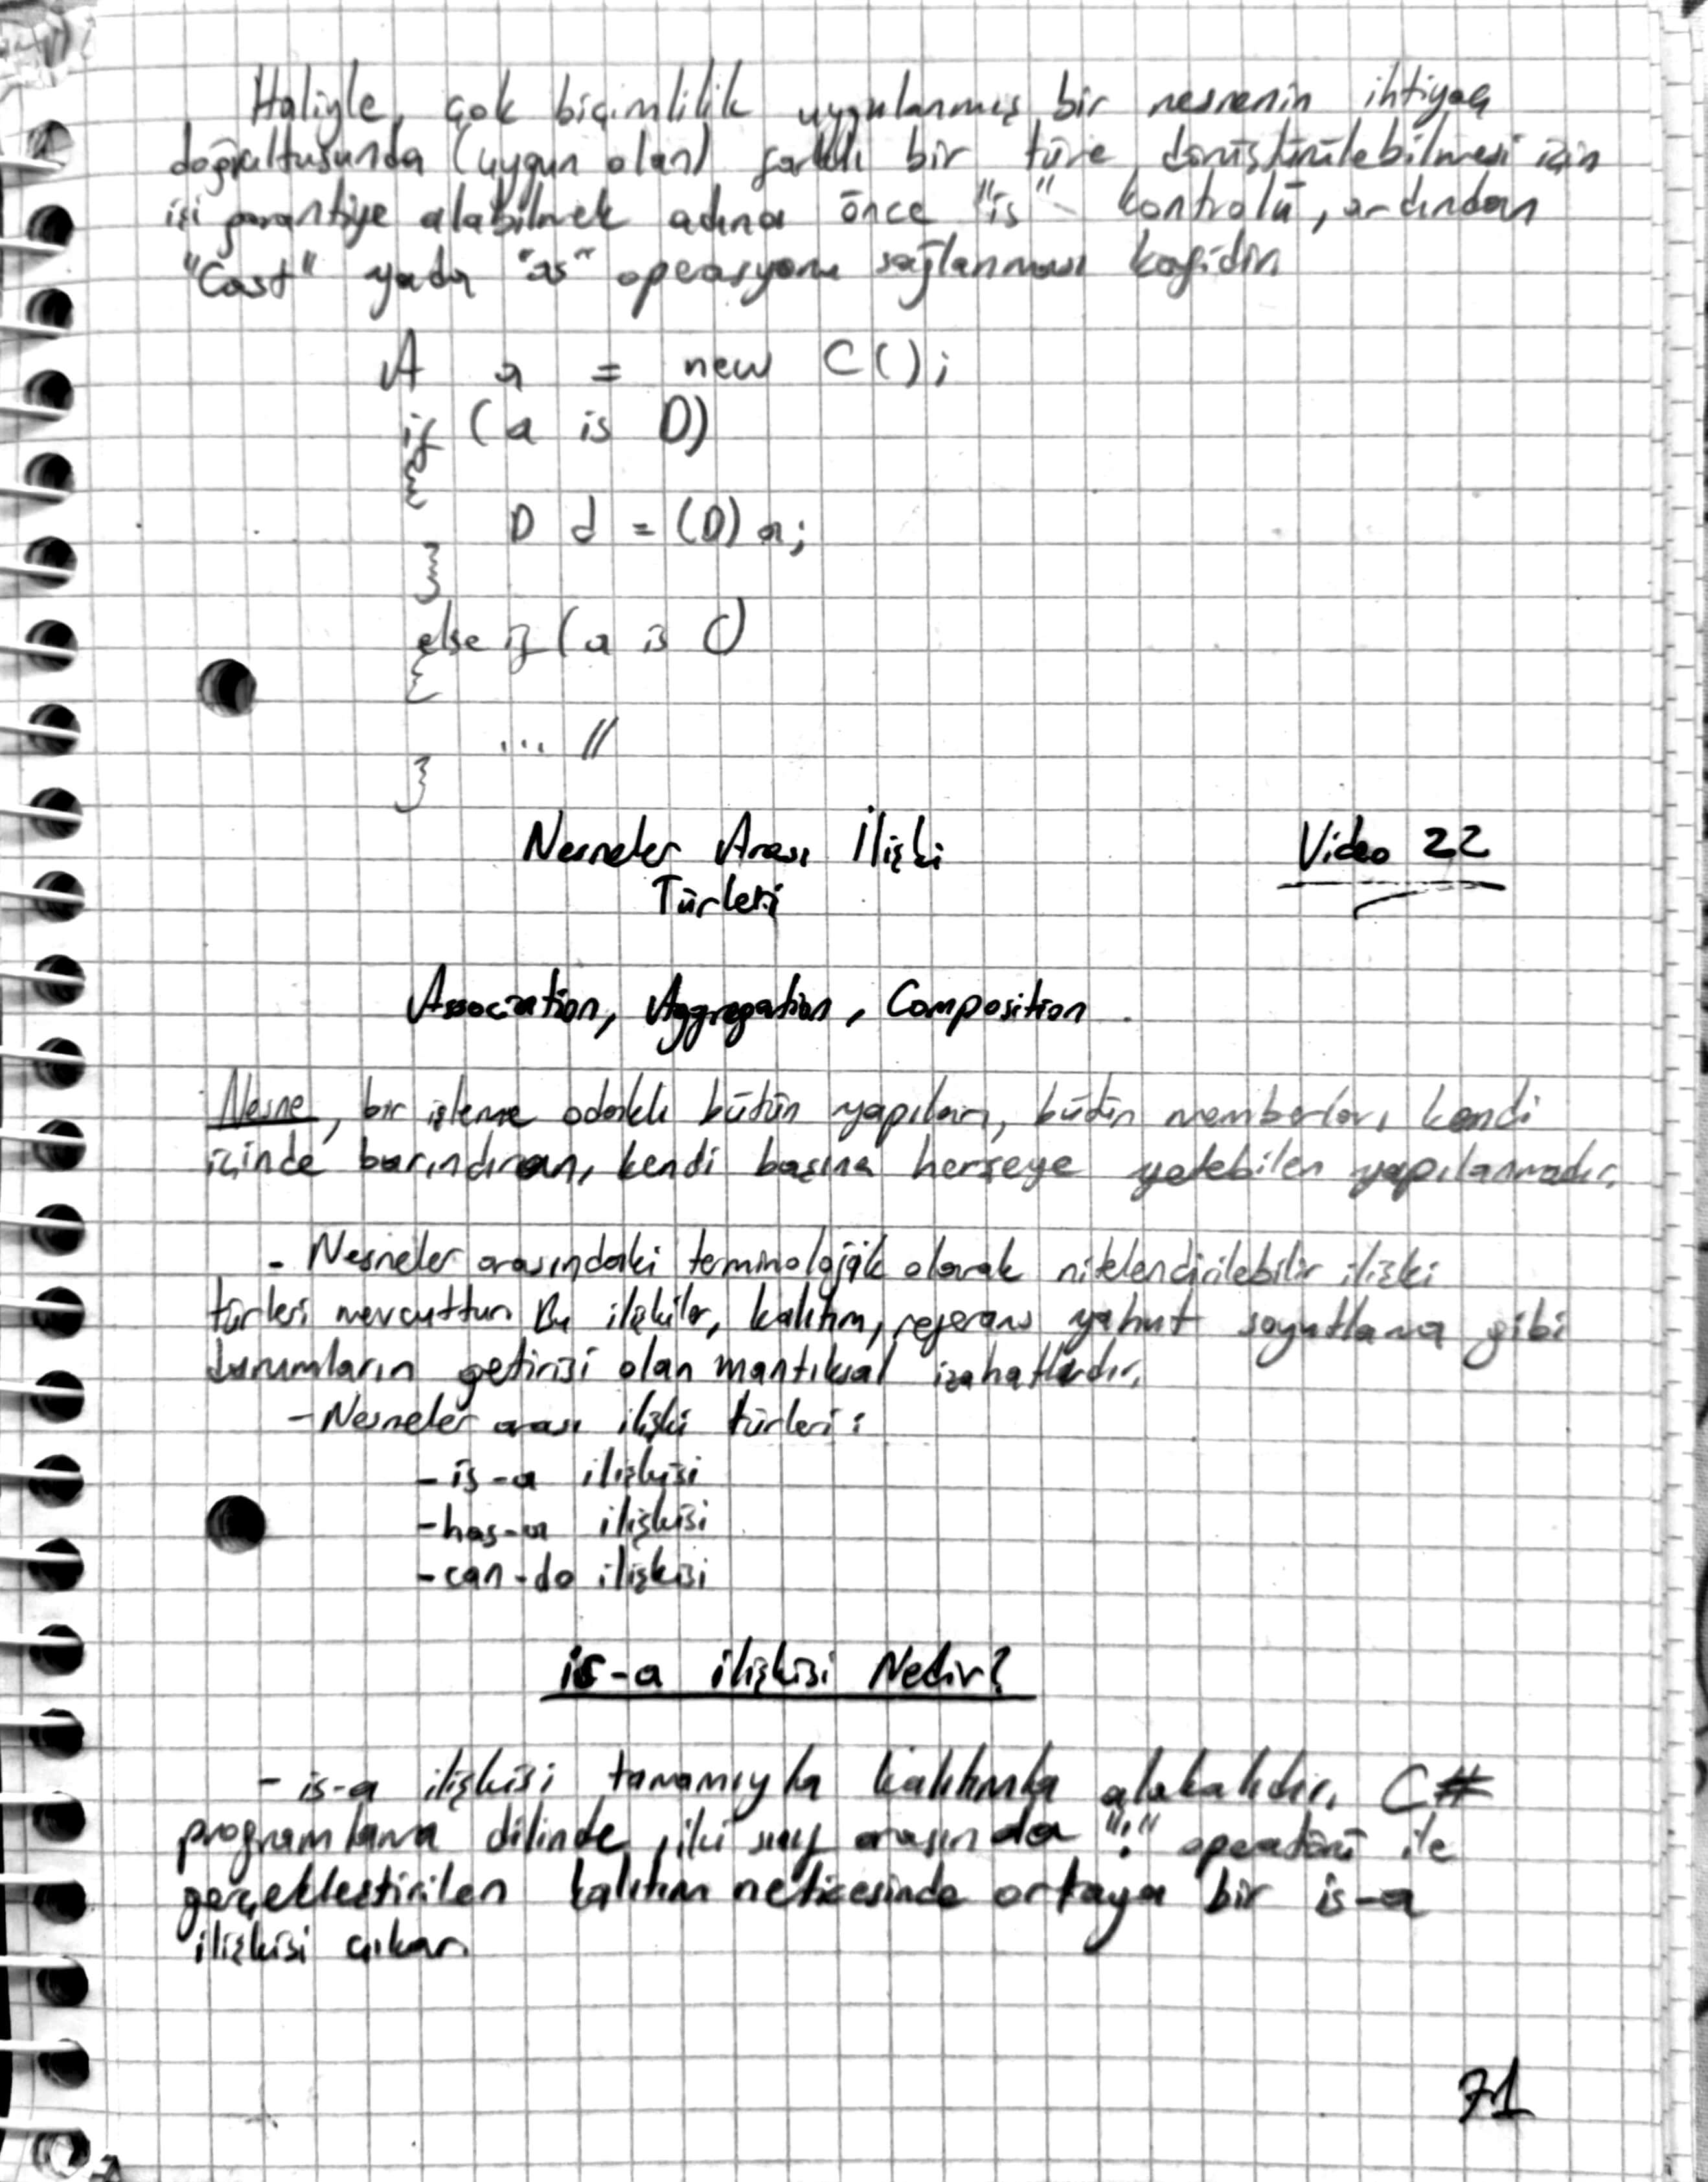 Haliyle, çok biçimlilik uygulanmış bir nesnenin ihtiyaç
doğrultusunda (uygun olan) farklı bir türe dönüştürülebilmesi için
işi garantiye alabilmek adına önce "is" kontrolü, ardından
"Cast" yada "as" operasyonu sağlanması kafidir.
A a = new C();
if (a is D)
{
D d = (D) a;
}
else if (a is C)
{
... //
}
Nesneler Arası İlişki
Türleri
Video 22
Association, Aggregation, Composition
Nesne, bir işleme odaklı bütün yapıları, bütün memberları kendi
içinde barındıran, kendi başına herşeye yetebilen yapılanmadır.
- Nesneler arasındaki terminolojik olarak nitelendirilebilir ilişki
türleri mevcuttur. Bu ilişkiler, kalıtım, referans yahut soyutlama gibi
durumların getirisi olan mantıksal izahatlardır.
- Nesneler arası ilişki türleri:
- is-a ilişkisi
- has-a ilişkisi
- can-do ilişkisi
is-a ilişkisi Nedir?
- is-a ilişkisi tamamıyla kalıtımla alakalıdır. C#
programlama dilinde, iki sınıf arasında ":" operatörü ile
gerçekleştirilen kalıtım neticesinde ortaya bir is-a
ilişkisi çıkar.
71